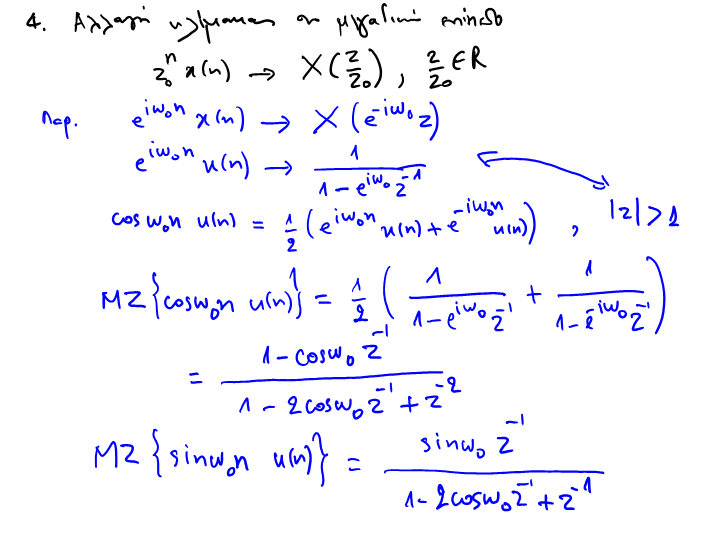 4. Αλλαγή κλίμακας στο μιγαδικό επίπεδο
z₀ⁿ x(n) → X(z/z₀), z/z₀ ∈ R
Παρ. e^{iω₀n} x(n) → X(e^{-iω₀} z)
e^{iω₀n} u(n) → 1/(1-e^{iω₀} z^{-1})
cos ω₀n u(n) = 1/2 (e^{iω₀n} u(n) + e^{-iω₀n} u(n)), |z|>1
MZ{cosω₀n u(n)} = 1/2 (1/(1-e^{iω₀} z^{-1}) + 1/(1-e^{-iω₀} z^{-1}))
= (1-cosω₀ z^{-1})/(1-2cosω₀ z^{-1} + z^{-2})
MZ{sinω₀n u(n)} = (sinω₀ z^{-1})/(1-2cosω₀ z^{-1} + z^{-1})